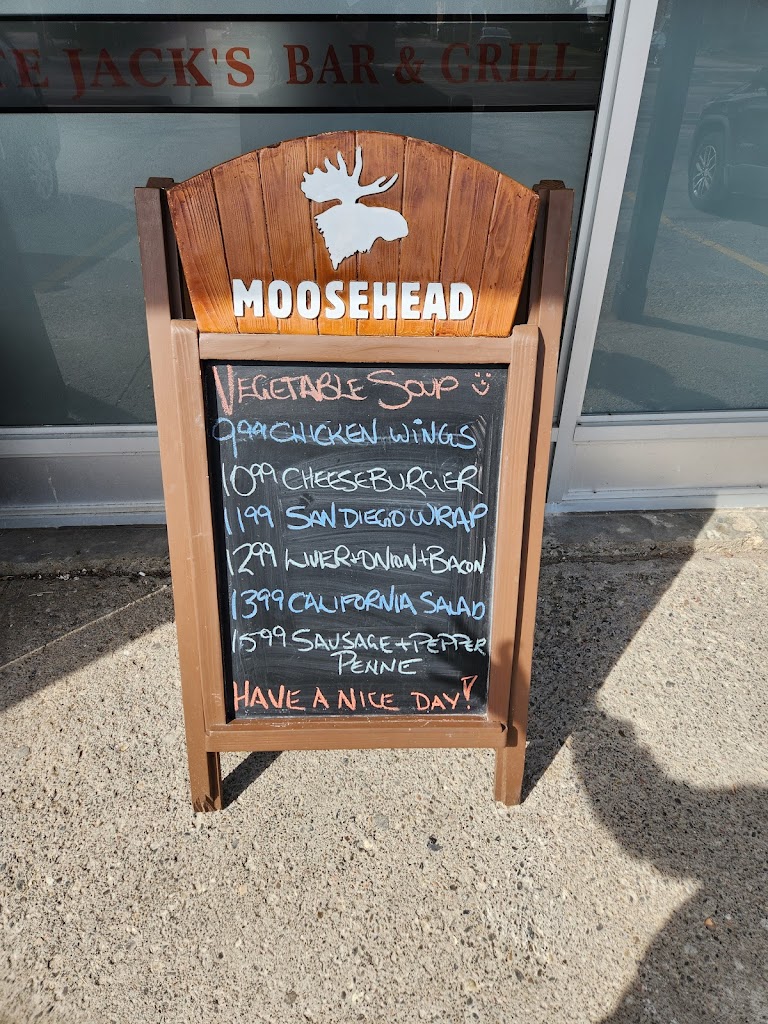 TE JACK'S BAR & GRILL
MOOSEHEAD
VEGETABLE SOUP
999 CHICKEN WINGS
1099 CHEESEBURGER
1199 SAN DIEGO WRAP
1299 LIVER+ONION+BACON
1399 CALIFORNIA SALAD
1599 SAUSAGE+PEPPER
PENNE
HAVE A NICE DAY!